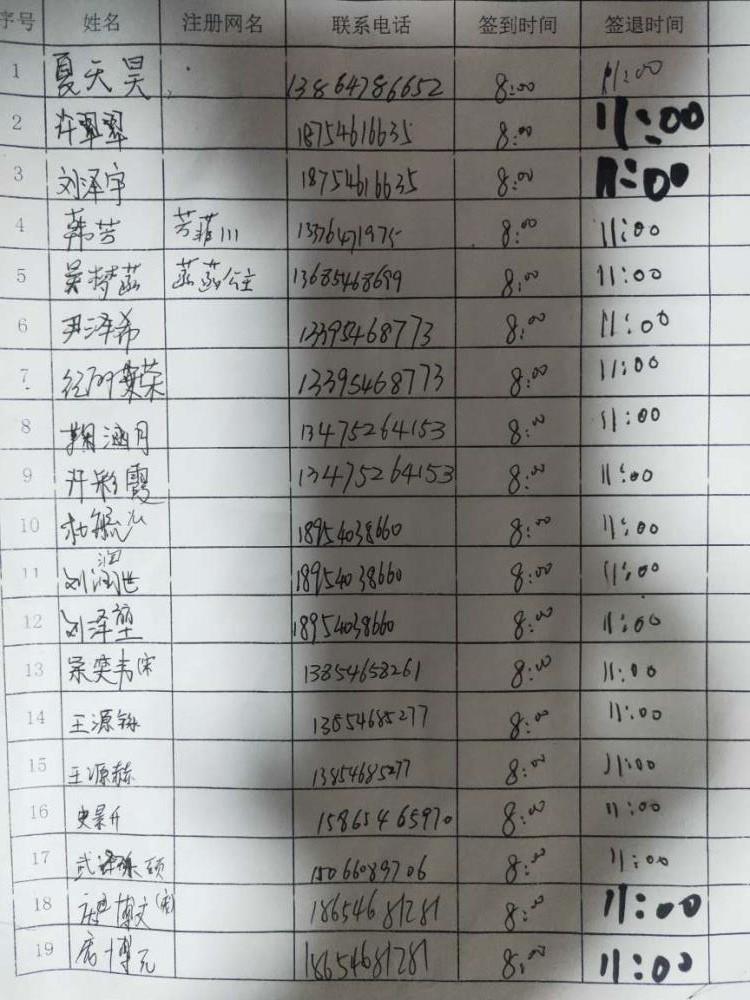 序号 姓名 注册网名 联系电话 签到时间 签退时间
1 夏天昊 13864786652 8:00 11:00
2 许翠翠 18754616635 8:00 11:00
3 刘泽宇 18754616635 8:00 11:00
4 韩芳 芳菲川 15376471975 8:00 11:00
5 吴梦菡 菡菡公主 13685468699 8:00 11:00
6 尹泽希 13395468773 8:00 11:00
7 13395468773 8:00 11:00
8 鞠涵月 13475264153 8:00 11:00
9 许彩霞 13475264153 8:00 11:00
10 18954038660 8:00 11:00
11 18954038660 8:00 11:00
12 刘泽堃 18954038660 8:00 11:00
13 13854658261 8:00 11:00
14 13854685277 8:00 11:00
15 王源赫 13854685277 8:00 11:00
16 史景升 15865465970 8:00 11:00
17 15066089706 8:00 11:00
18 18654681281 8:00 11:00
19 18654681281 8:00 11:00